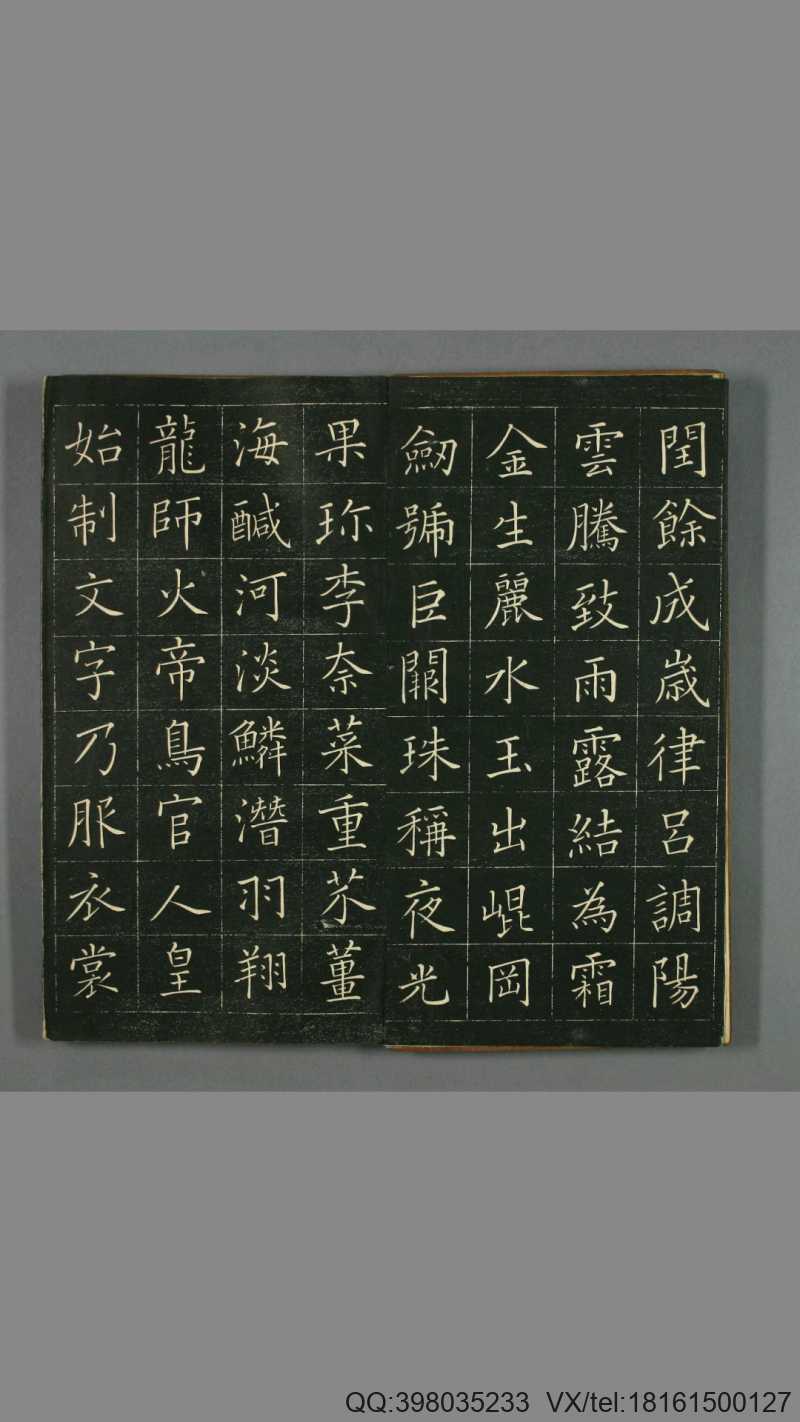 閏餘成歲律呂調陽
雲騰致雨露結為霜
金生麗水玉出崐岡
劒號巨闕珠稱夜光
果珎李柰菜重芥薑
海醎河淡鱗潛羽翔
龍師火帝鳥官人皇
始制文字乃服衣裳
QQ:398035233 VX/tel:18161500127